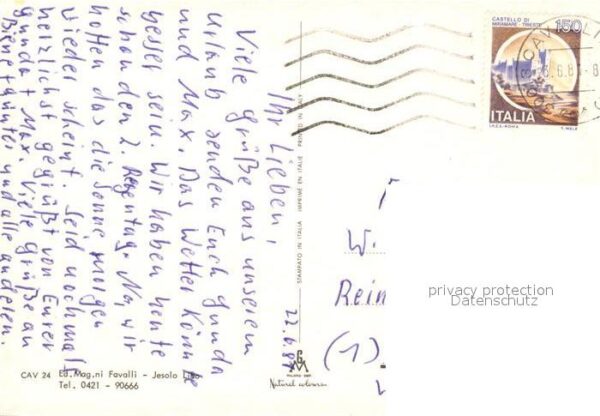 Ihr Lieben,
Viele Grüße aus unserem
Urlaub senden Euch Gunda
und Max. Das Wetter könnte
besser sein. Wir haben heute
schon den 2. Regentag. Na, wir
hoffen das die Sonne morgen
wieder scheint. Seid nochmals
herzlichst gegrüßt von Eurer
Gunda + Max. Viele Grüße an
Biene + Günter und alle anderen.
22.6.84
CAV 24 Ed.Mag.ni Favalli - Jesolo Lido
Tel. 0421 - 90666
STAMPATO IN ITALIA IMPRIMÉ EN ITALIE PRINTED IN ITALY
MILANO
Natural colours
CASTELLO DI
MIRAMARE - TRIESTE
150
ITALIA
I.P.Z.S.-ROMA
CAV
W.
Rein
(1)
privacy protection
Datenschutz